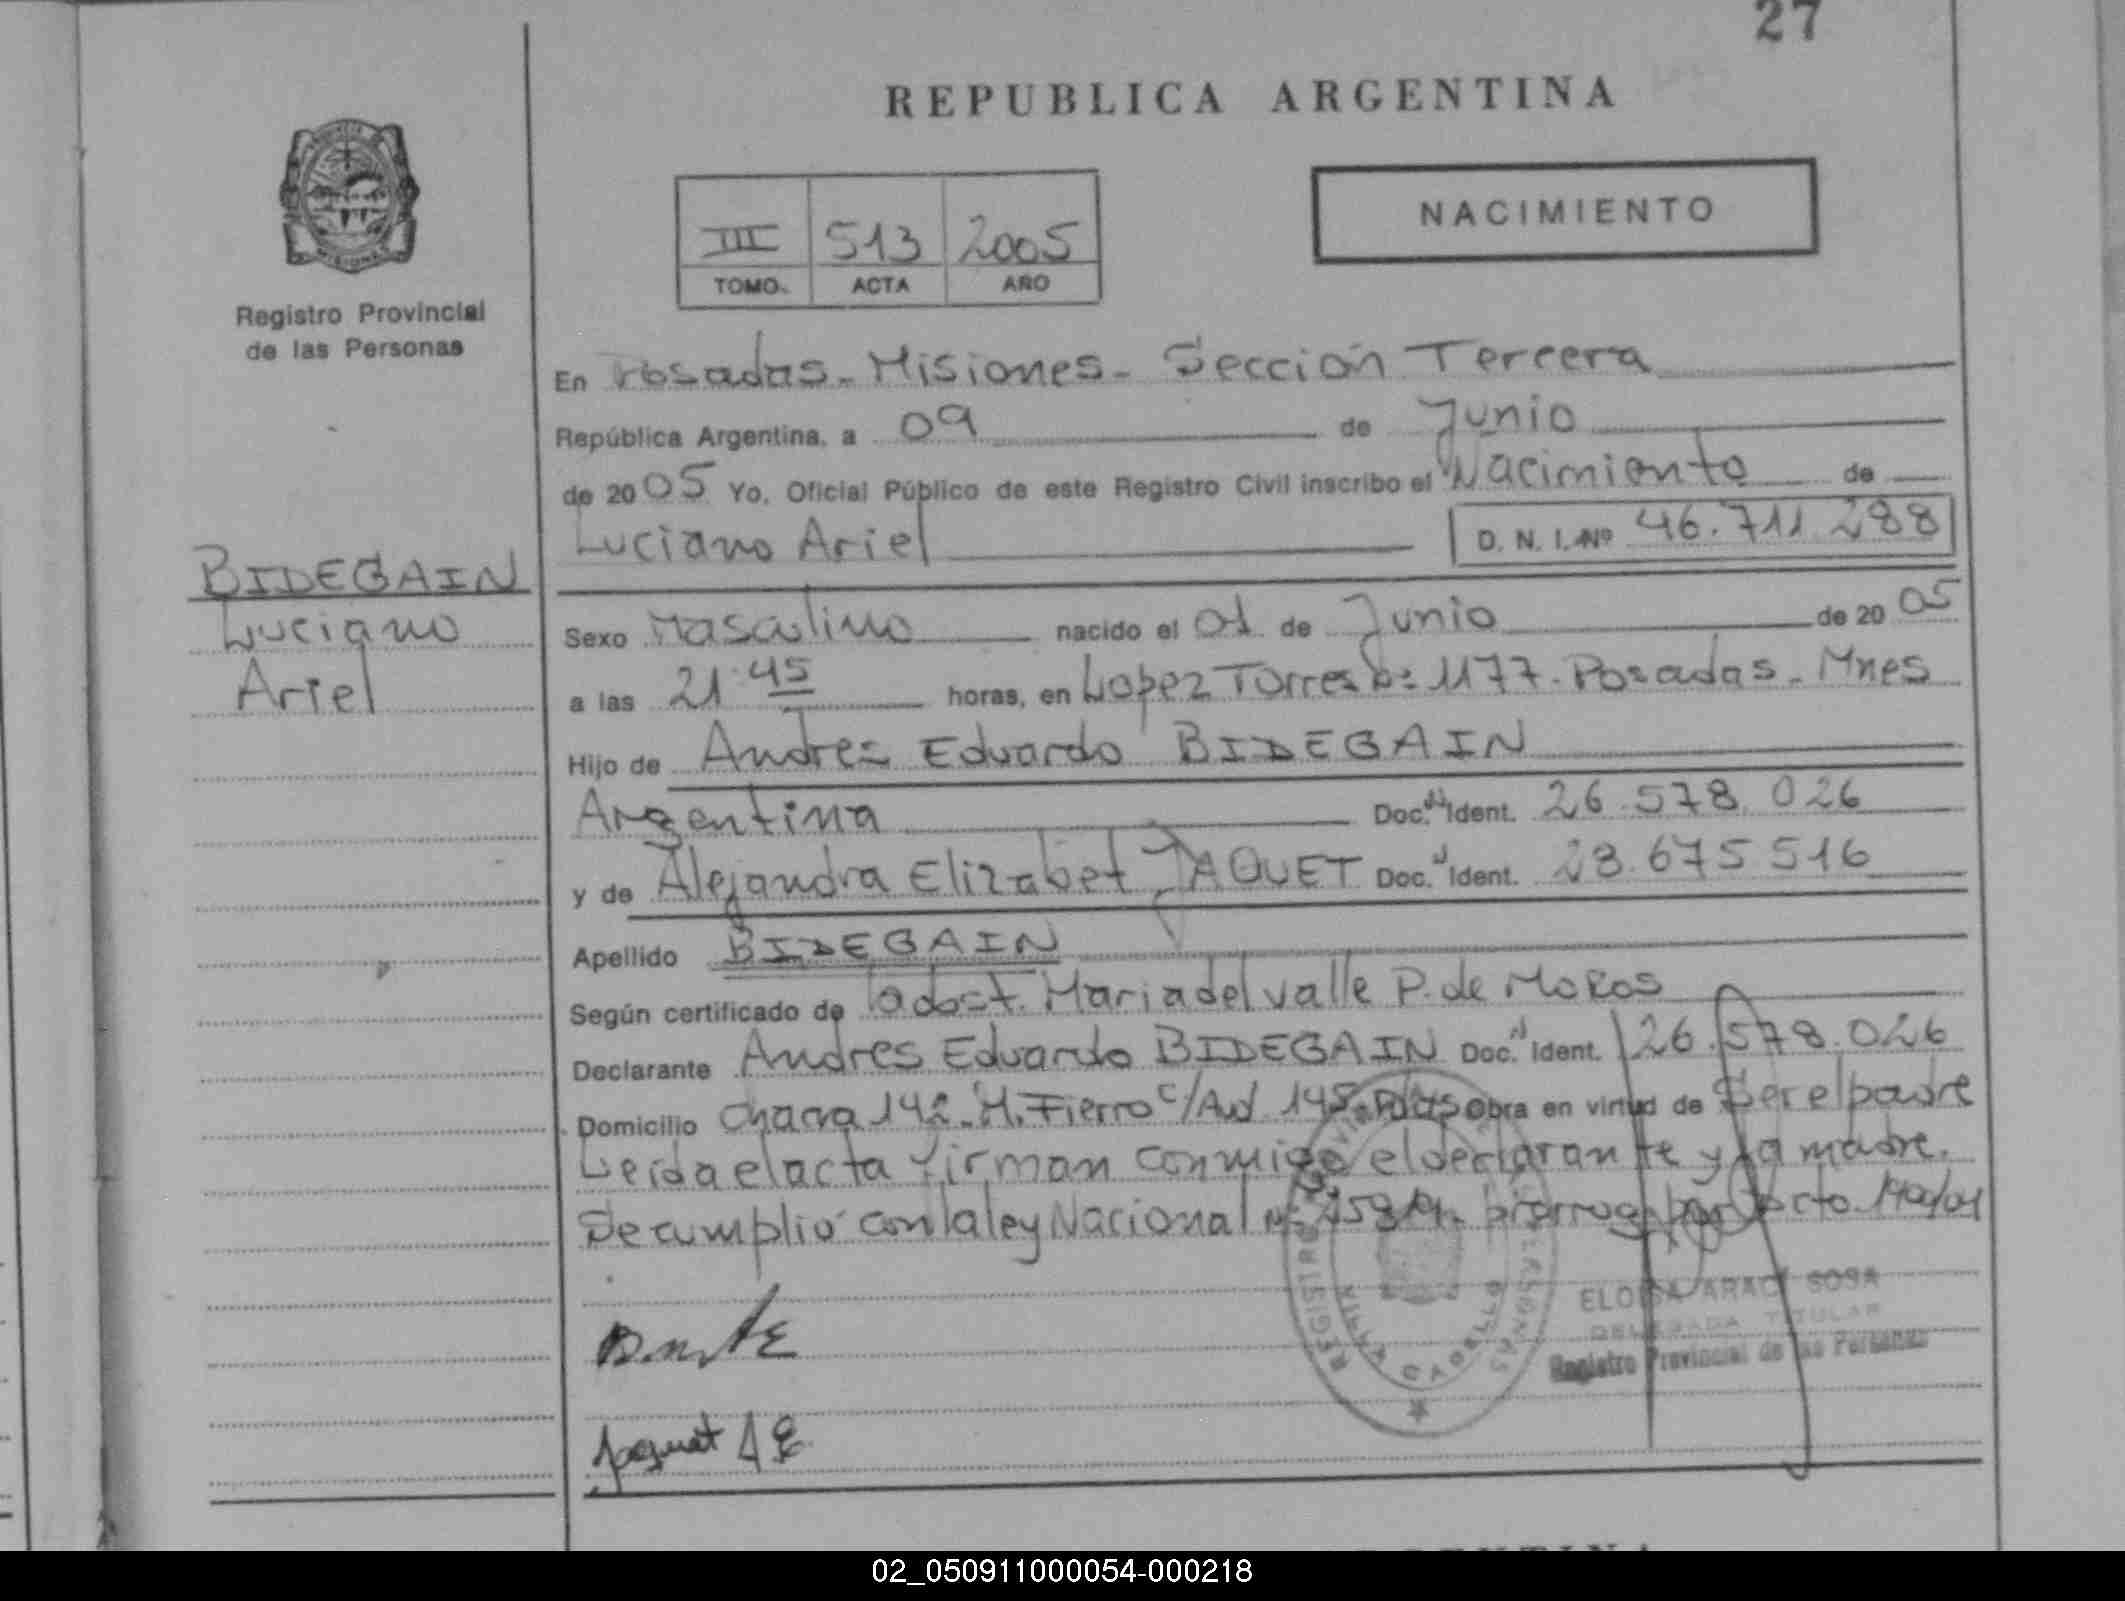 27
REPUBLICA ARGENTINA
III 513 2005
TOMO. ACTA AÑO
NACIMIENTO
MISIONES
Registro Provincial
de las Personas
BIDEGAIN
Luciano
Ariel
En Posadas - Misiones - Sección Tercera
República Argentina, a 09 de Junio
de 2005 Yo, Oficial Público de este Registro Civil inscribo el Nacimiento de
Luciano Ariel D. N. I. Nº 46.711.288
Sexo Masculino nacido el 01 de Junio de 2005
a las 21:45 horas, en Lopez Torres Nº 1177 - Posadas - Mnes
Hijo de Andres Eduardo BIDEGAIN
Argentina Doc. N Ident. 26.578.026
y de Alejandra Elizabet JAQUET Doc. N Ident. 23.675516
Apellido BIDEGAIN
Según certificado de obst. Maria del valle P. de Moros
Declarante Andres Eduardo BIDEGAIN Doc. N Ident. 26.578.026
Domicilio Chacra 142 - M. Fierro c/Av 145 - Pdas obra en virtud de Ser el padre
Leída el acta firman conmigo el declarante y la madre.
Se cumplió con la ley Nacional
ELOISA ARACI SOSA
DELEGADA TITULAR
Registro Provincial de las Personas
REGISTRO
VILLA CABELLO
Jaquet A E
02_050911000054-000218